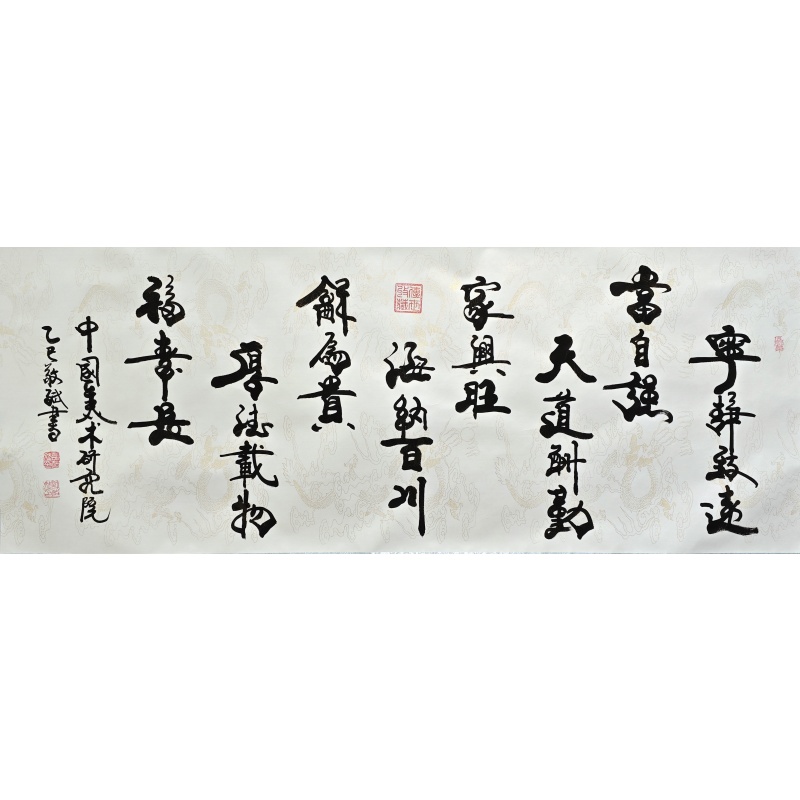 寧靜致遠
當自强
天道酬勤
家興旺
海納百川
龢為貴
厚德載物
福壽長
中國美术研究院
乙巳敬斌書